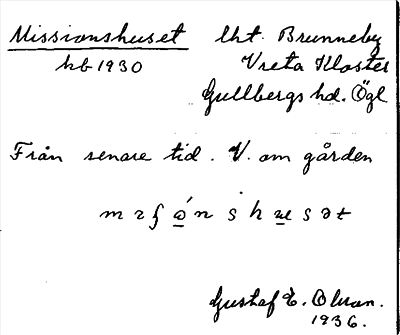 Missionshuset lht. Brunneby
hb 1930 Vreta Kloster
Gullbergs hd. Ögl
Från senare tid. V. om gården
Gustaf E. Olson.
1936.